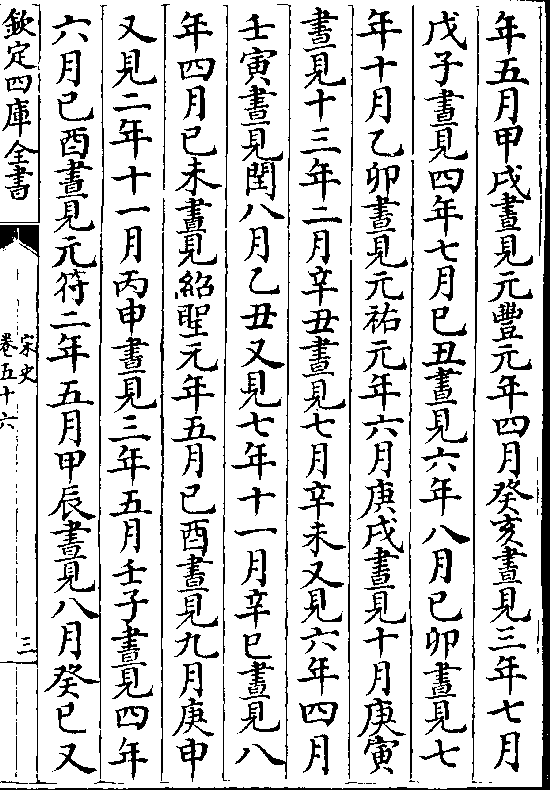 年五月甲戌晝見元豐元年四月癸亥晝見三年七月
戊子晝見四年七月己丑晝見六年八月己卯晝見七
年十月乙卯晝見元祐元年六月庚戌晝見十月庚寅
晝見十三年二月辛丑晝見七月辛未又見六年四月
壬寅晝見閏八月乙丑又見七年十一月辛巳晝見八
年四月己未晝見紹聖元年五月己酉晝見九月庚申
又見二年十一月丙申晝見三年五月壬子晝見四年
六月己酉晝見元符二年五月甲辰晝見八月癸巳又
欽定四庫全書
宋史
卷五十六
三